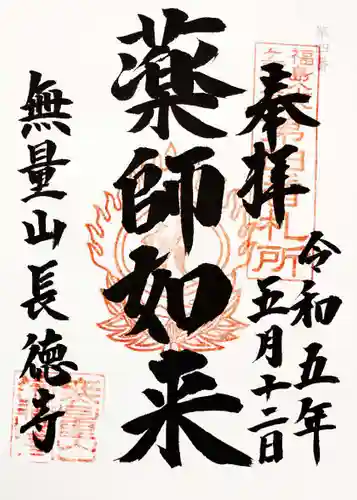 奉拝
令和五年
五月十二日
薬師如来
無量山長徳寺